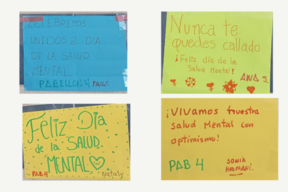 CELEBREMOS
UNIDOS EL DÍA
DE LA SALUD
MENTAL
PABELLON 4
Nunca te
quedes callado
¡Feliz día de la
Salud Mental!
ANA
FELIZ Día
de la SALUD
MENTAL
PAB 4
¡Vivamos nuestra
salud Mental con
optimismo!
PAB 4
SONIA